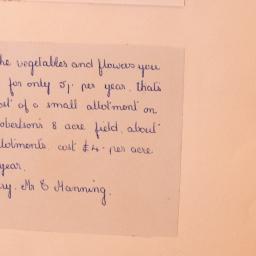 he vegetables and flowers you
for only 5/- per year, thats
ost of a small allotment on
obertson's 8 acre field, about
lotments cost £4- per acre
year.
ry. Mr E Manning.